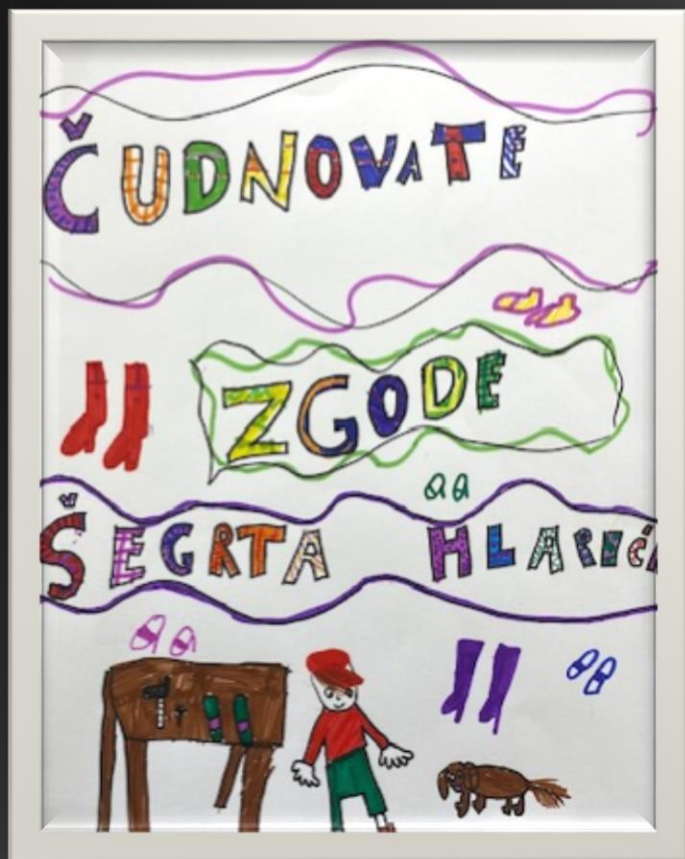 ČUDNOVATE
ZGODE
ŠEGRTA HLAPIĆA